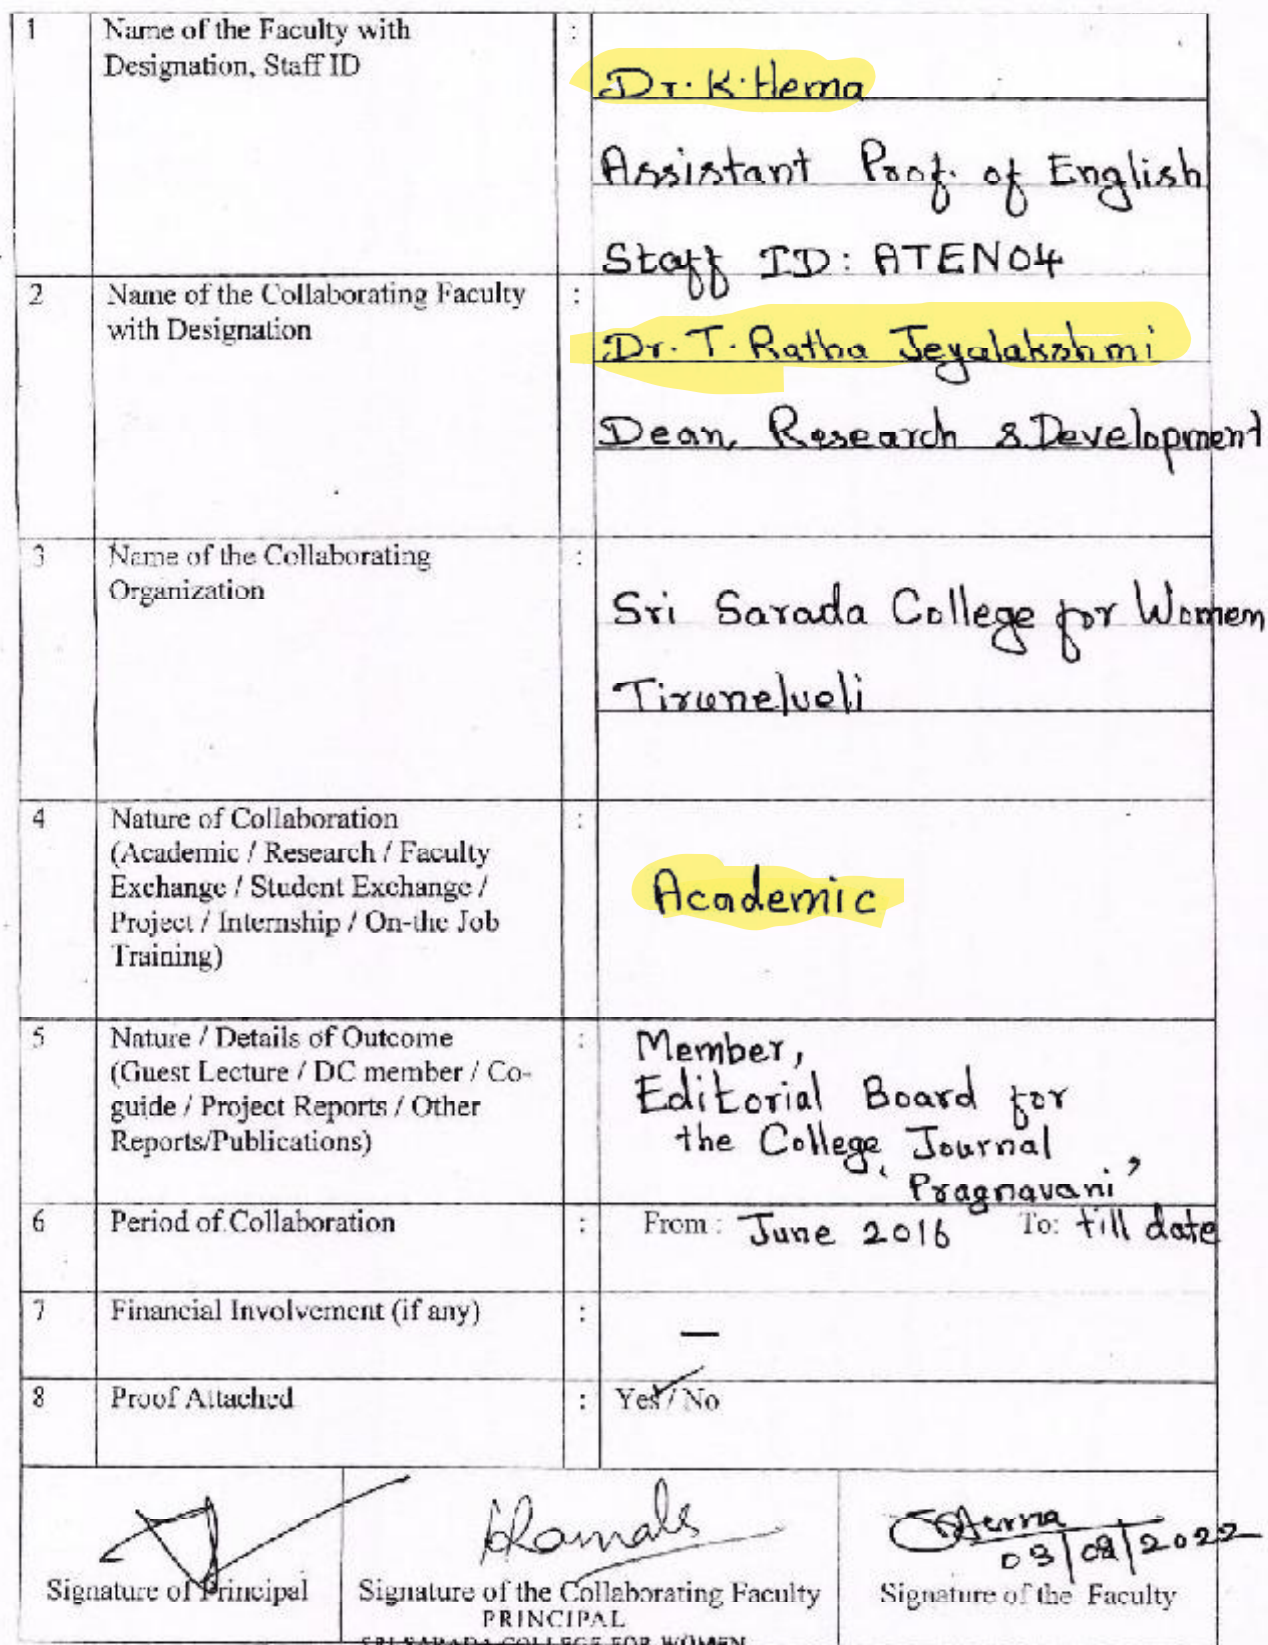 1 Name of the Faculty with
Designation, Staff ID :
Dr. K. Hema
Assistant Prof. of English
Staff ID: ATEN04
2 Name of the Collaborating Faculty
with Designation :
Dr. T. Ratha Jeyalakshmi
Dean, Research & Development
3 Name of the Collaborating
Organization :
Sri Sarada College for Women
Tirunelveli
4 Nature of Collaboration
(Academic / Research / Faculty
Exchange / Student Exchange /
Project / Internship / On-the Job
Training) :
Academic
5 Nature / Details of Outcome
(Guest Lecture / DC member / Co-
guide / Project Reports / Other
Reports/Publications) :
Member,
Editorial Board for
the College Journal
'Pragnavani'
6 Period of Collaboration : From : June 2016 To: till date
7 Financial Involvement (if any) : —
8 Proof Attached : Yes / No
Hema
03/08/2022
Signature of Principal
Signature of the Collaborating Faculty
Signature of the Faculty
PRINCIPAL
SRI SARADA COLLEGE FOR WOMEN